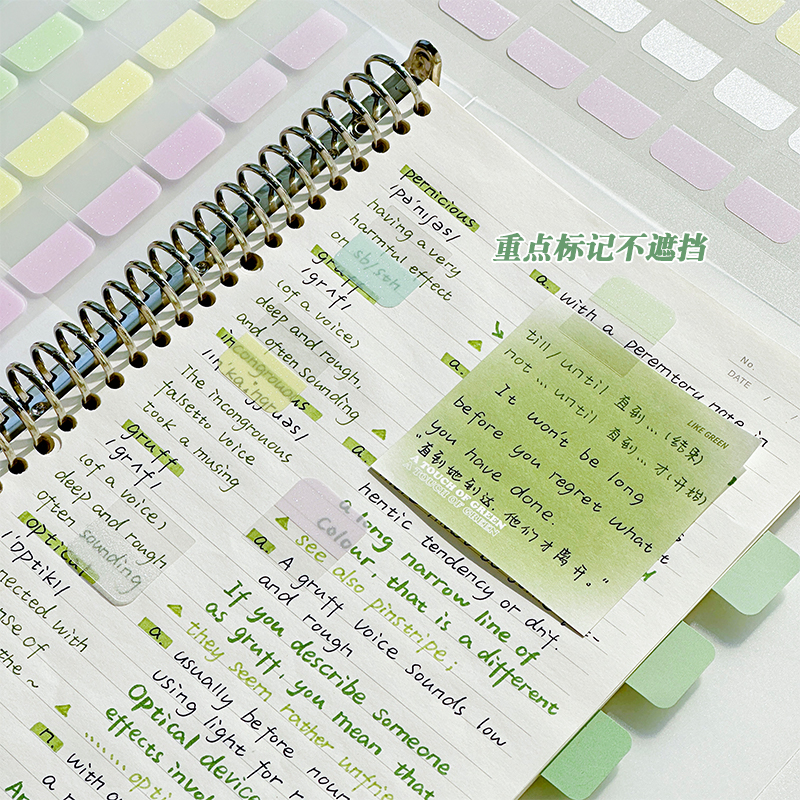 重点标记不遮挡
pernicious
/pə'nɪʃəs/
having a very
harmful effect
on sb/sth.
gruff
/grʌf/
(of a voice)
deep and rough,
and often sounding
incongruous
The incongruous
falsetto voice
took a musing
gruff
/grʌf/
(of a voice)
deep and rough
often sounding
optical
/'ɒptɪkl/
nected with
ense of
the ~
a. with a peremtory note in
a.
a.
No.
DATE / /
LIKE GREEN
till/until 直到…(结束)
not … until 直到…才(开始)
It won't be long
before you regret what
you have done.
"直到她到达,他们才离开。"
A TOUCH OF GREEN
A TOUCH OF GREEN
hentic tendency or
a long narrow line of
colour that is a different
see also pinstripe;
a. A gruff voice sounds low
and rough
If you describe someone
as gruff, you mean that
they seem rather unfrie
a. usually before noun
using light for
Optical device
effects invol
opti
n. with